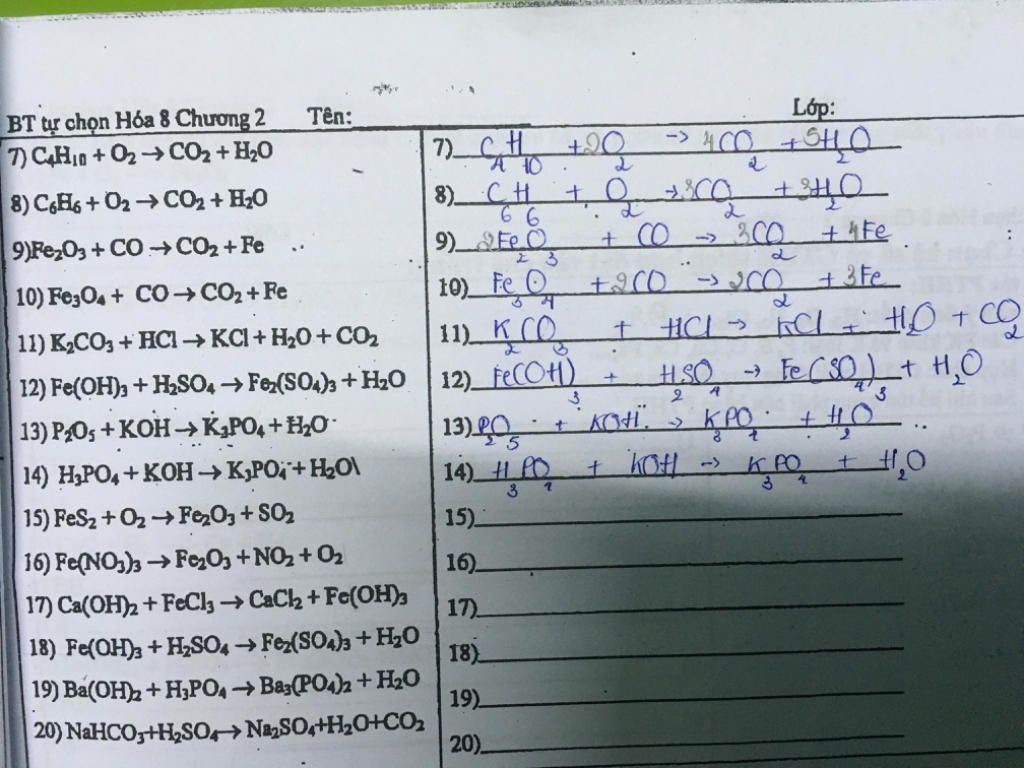 BT tự chọn Hóa 8 Chương 2 Tên: Lớp:
7) C₄H₁₀ + O₂ → CO₂ + H₂O
8) C₆H₆ + O₂ → CO₂ + H₂O
9)Fe₂O₃ + CO → CO₂ + Fe
10) Fe₃O₄ + CO → CO₂ + Fe
11) K₂CO₃ + HCl → KCl + H₂O + CO₂
12) Fe(OH)₃ + H₂SO₄ → Fe₂(SO₄)₃ + H₂O
13) P₂O₅ + KOH → K₃PO₄ + H₂O
14) H₃PO₄ + KOH → K₃PO₄ + H₂O
15) FeS₂ + O₂ → Fe₂O₃ + SO₂
16) Fe(NO₃)₃ → Fe₂O₃ + NO₂ + O₂
17) Ca(OH)₂ + FeCl₃ → CaCl₂ + Fe(OH)₃
18) Fe(OH)₃ + H₂SO₄ → Fe₂(SO₄)₃ + H₂O
19) Ba(OH)₂ + H₃PO₄ → Ba₃(PO₄)₂ + H₂O
20) NaHCO₃+H₂SO₄→ Na₂SO₄+H₂O+CO₂
7) C₄H₁₀ + 2O₂ → 4CO₂ + 5H₂O
8) C₆H₆ + O₂ → 3CO₂ + 3H₂O
9) 2Fe₂O₃ + CO → 3CO₂ + 4Fe
10) Fe₃O₄ + 2CO → 2CO₂ + 3Fe
11) K₂CO₃ + HCl → KCl + H₂O + CO₂
12) Fe(OH)₃ + H₂SO₄ → Fe(SO₄)₃ + H₂O
13) P₂O₅ + KOH → K₃PO₄ + H₂O
14) H₃PO₄ + KOH → K₃PO₄ + H₂O
15)
16)
17)
18)
19)
20)